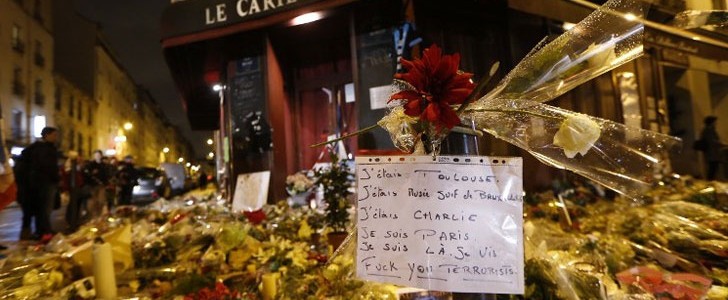 LE CARIL
J'étais TOULOUSE.
J'étais Musée Juif de BRUXELLES
J'étais CHARLIE
JE SUIS PARIS
JE SUIS LÀ. JE VIS.
FUCK YOU TERRORISTS.